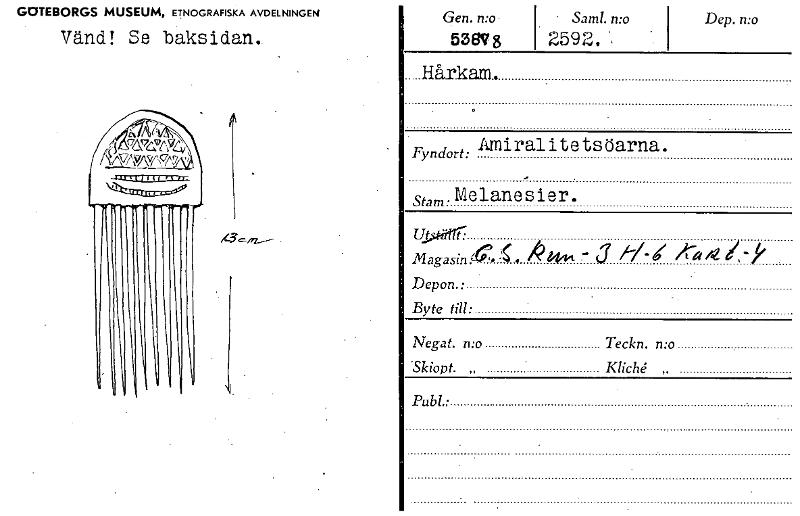 GÖTEBORGS MUSEUM, ETNOGRAFISKA AVDELNINGEN
Vänd! Se baksidan.
13 cm
Gen. n:o Saml. n:o Dep. n:o
2592.
Hårkam.
Fyndort: Amiralitetsöarna.
Stam: Melanesier.
Utställt:
Magasin: G.S. Rum - 3 H-6 Kart.-4
Depon.:
Byte till:
Negat. n:o Teckn. n:o
Skiopt. „ Kliché „
Publ.: